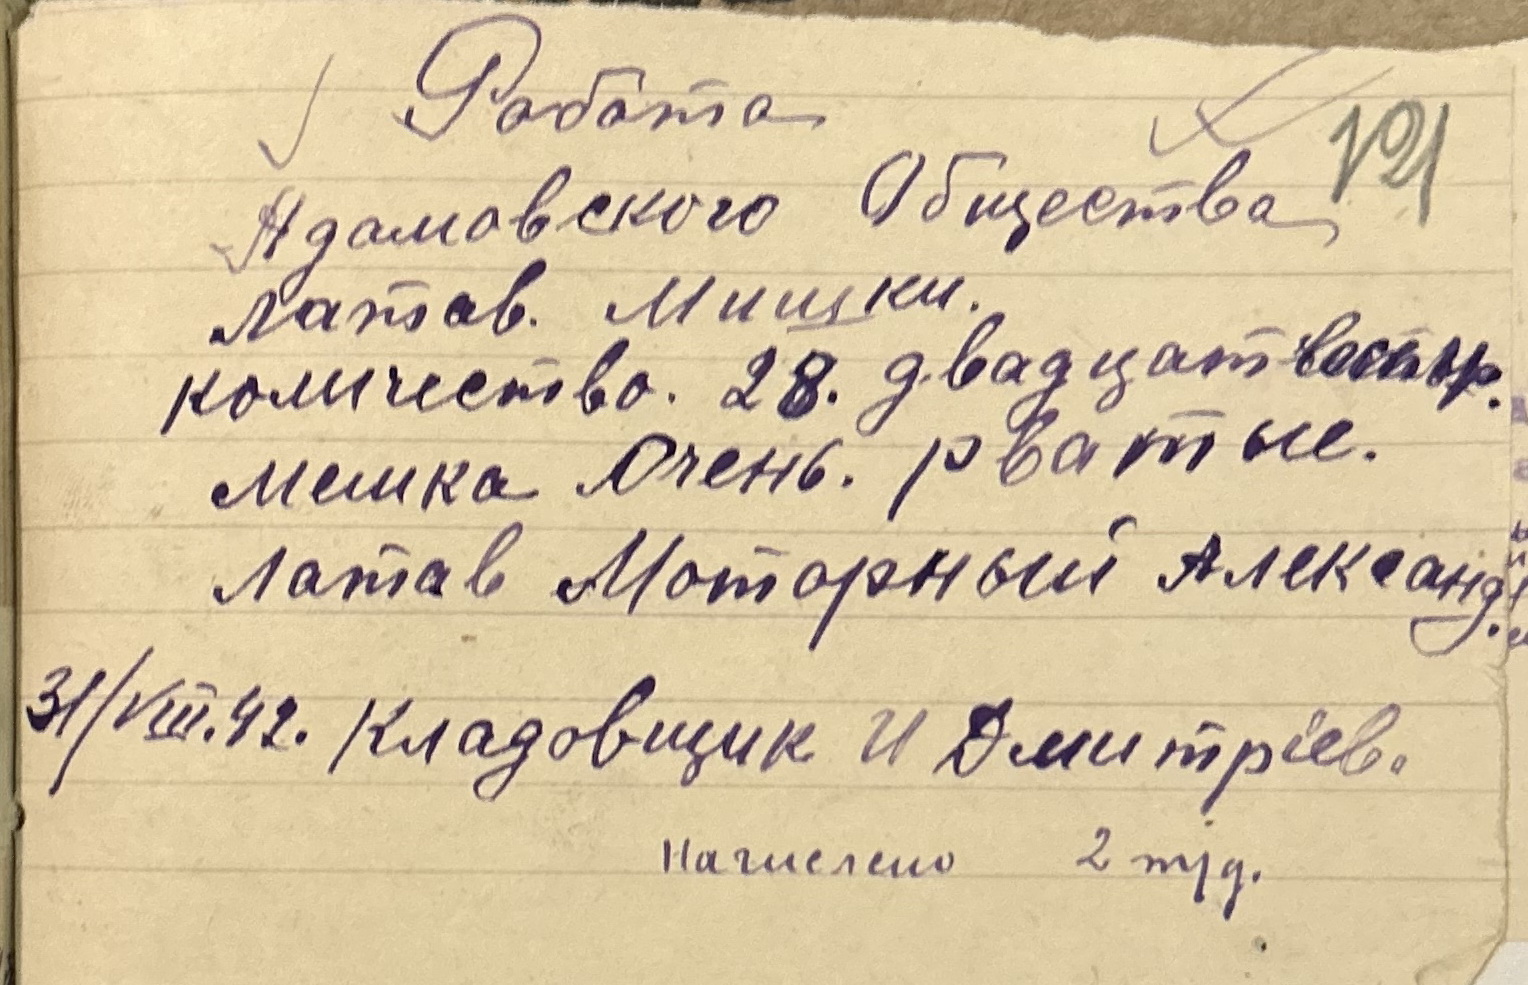 Работа
121
Адамовского Общества
латав. Мишки.
количество. 28. двадцат
мешка Очень. рватые.
латав Моторный Александ.
31/VIII.42. Кладовщик И Дмитріев.
Начислено 2 т/д.